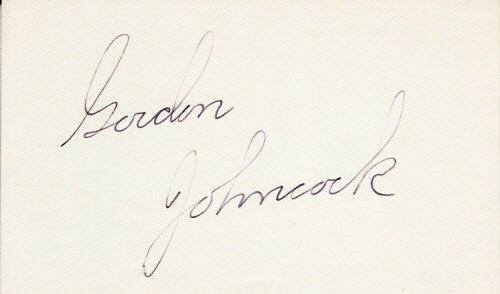 Gordon
Johncock